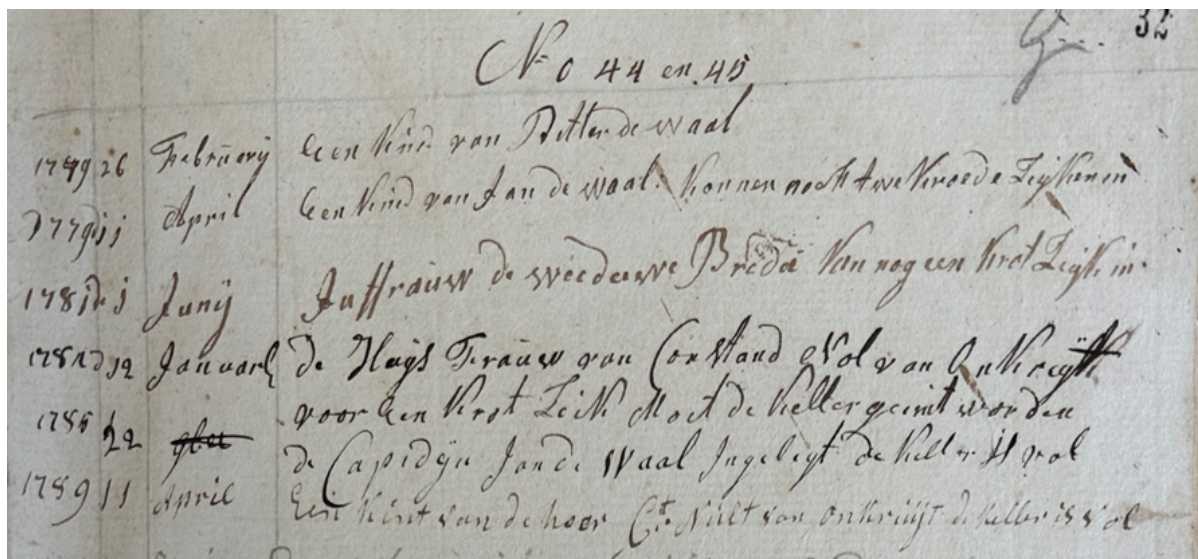 32
No 44 en 45
1779 26 Februarij Een kind van Pitter de Waal
1779 d 11 April Een kind van Jan de Waal. konnen noch twe kroede Leijken in
1781 de 1 Junij Juffrauw de weedeuwe Breda kan nog een krot Leijk in.
d 12 Januarij de Huijs Frauw van Constand Nol van Onkreijtt
voor Een krot Leik Moet de keller geruimt worden
1785 22 de Capidijn Jan de Waal Ingelegt de keller is vol
1789 11 April Een kint van de hoor Ct. Nult van onkruijt de keller is vol